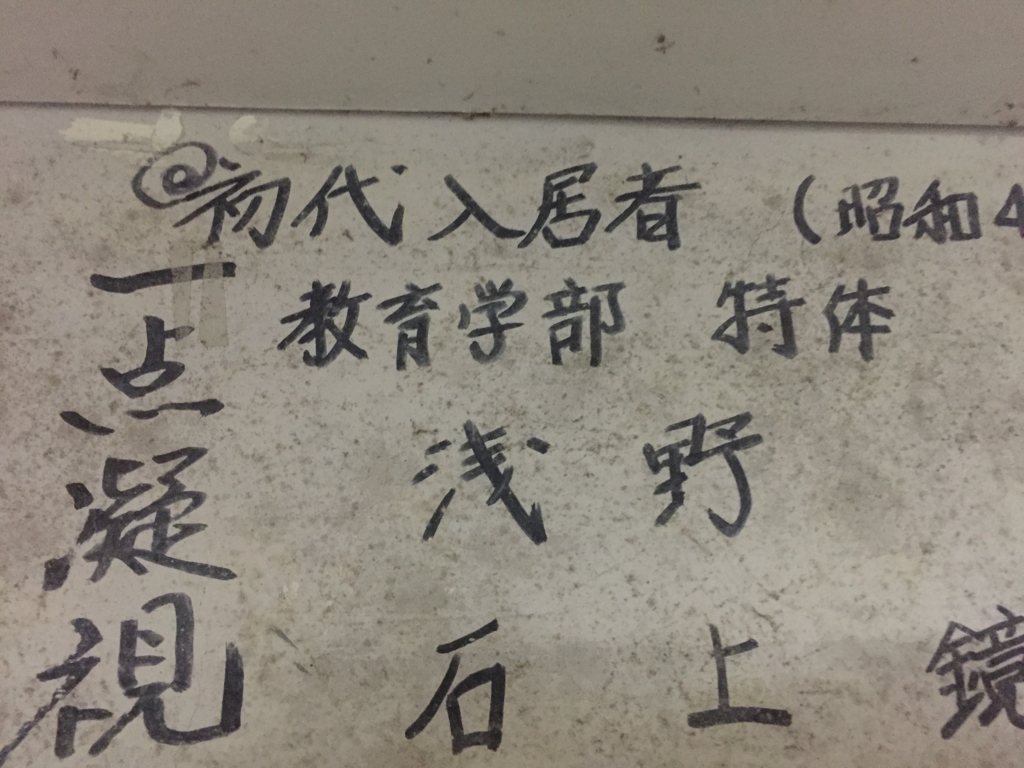 初代入居者 (昭和4
教育学部 特体
浅野
石上鏡
一点凝視